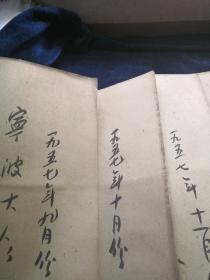 寧波大人
一九五七年九月份
一九五七年十月份
一九五七年十一月